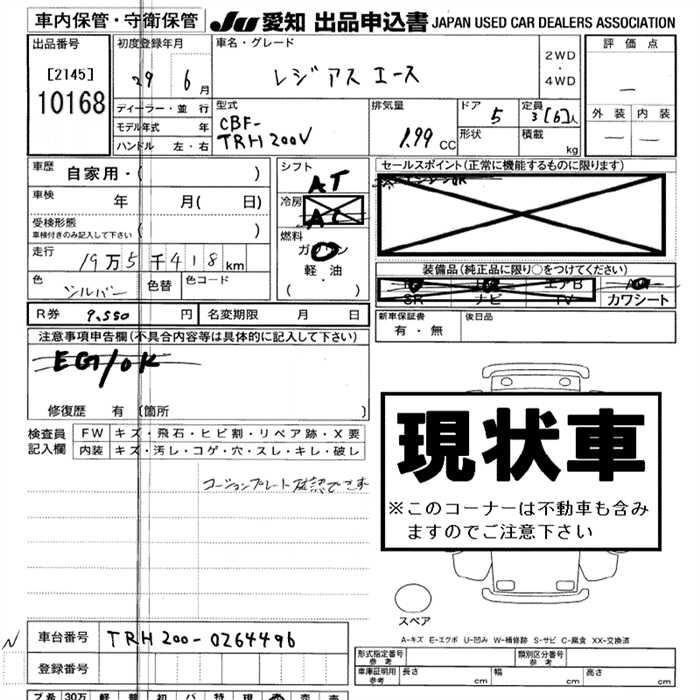 車内保管・守衛保管 JU 愛知 出品申込書 JAPAN USED CAR DEALERS ASSOCIATION
出品番号 初度登録年月 車名・グレード 2WD ・ 4WD 評価点
[2145] 29 6月 レジアス エース
10168 ディーラー・並行 型式 排気量 ドア 定員 外装 内装
モデル年式 年 CBF- 5 3[6]人
ハンドル 左・右 TRH200V 1.99 CC 形状 積載 kg
車歴 自家用・( ) シフト AT セールスポイント(正常に機能するものに限ります)
車検 年 月( 日) 冷房 AC
受検形態 車検付きのみ記入して下さい ( ) 燃料 ガソリン
走行 19万5千418km 軽・油 装備品(純正品に限り○をつけてください)
色 シルバー 色替 色コード ( ・ ) エアB
SR ナビ TV カワシート
R券 9,550円 名変期限 月 日 新車保証書 有・無 後日品
注意事項申告欄(不具合内容等は具体的に記入して下さい)
EG/OK
修復歴 有 (箇所 )
検査員 記入欄 FW キズ・飛石・ヒビ割・リペア跡・X要
内装 キズ・汚レ・コゲ・穴・スレ・キレ・破レ
コーションプレート確認できず
現状車
※このコーナーは不動車も含み
ますのでご注意下さい
スペア
A-キズ E-エクボ U-凹み W-補修跡 S-サビ C-腐食 XX-交換済
N 車台番号 TRH200-0264496
登録番号
型式指定番号 参考 類別区分番号 参考
車庫証明用 参考 長さ cm 幅 cm 高さ cm